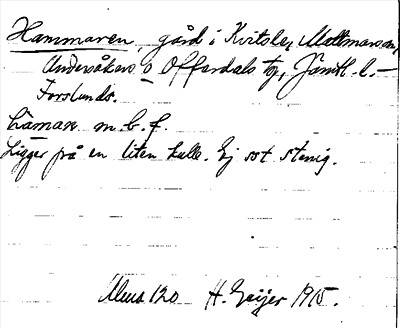 Hammaren, gård i Kvitsle, Mattmar sn,
Undersåkers o Offerdals tg, Jämtl. l. —
Forslunds.
hàmarn m. b. f.
Ligger på en liten kulle. Ej sot stenig.
Mus 120 H. Geijer 1915.